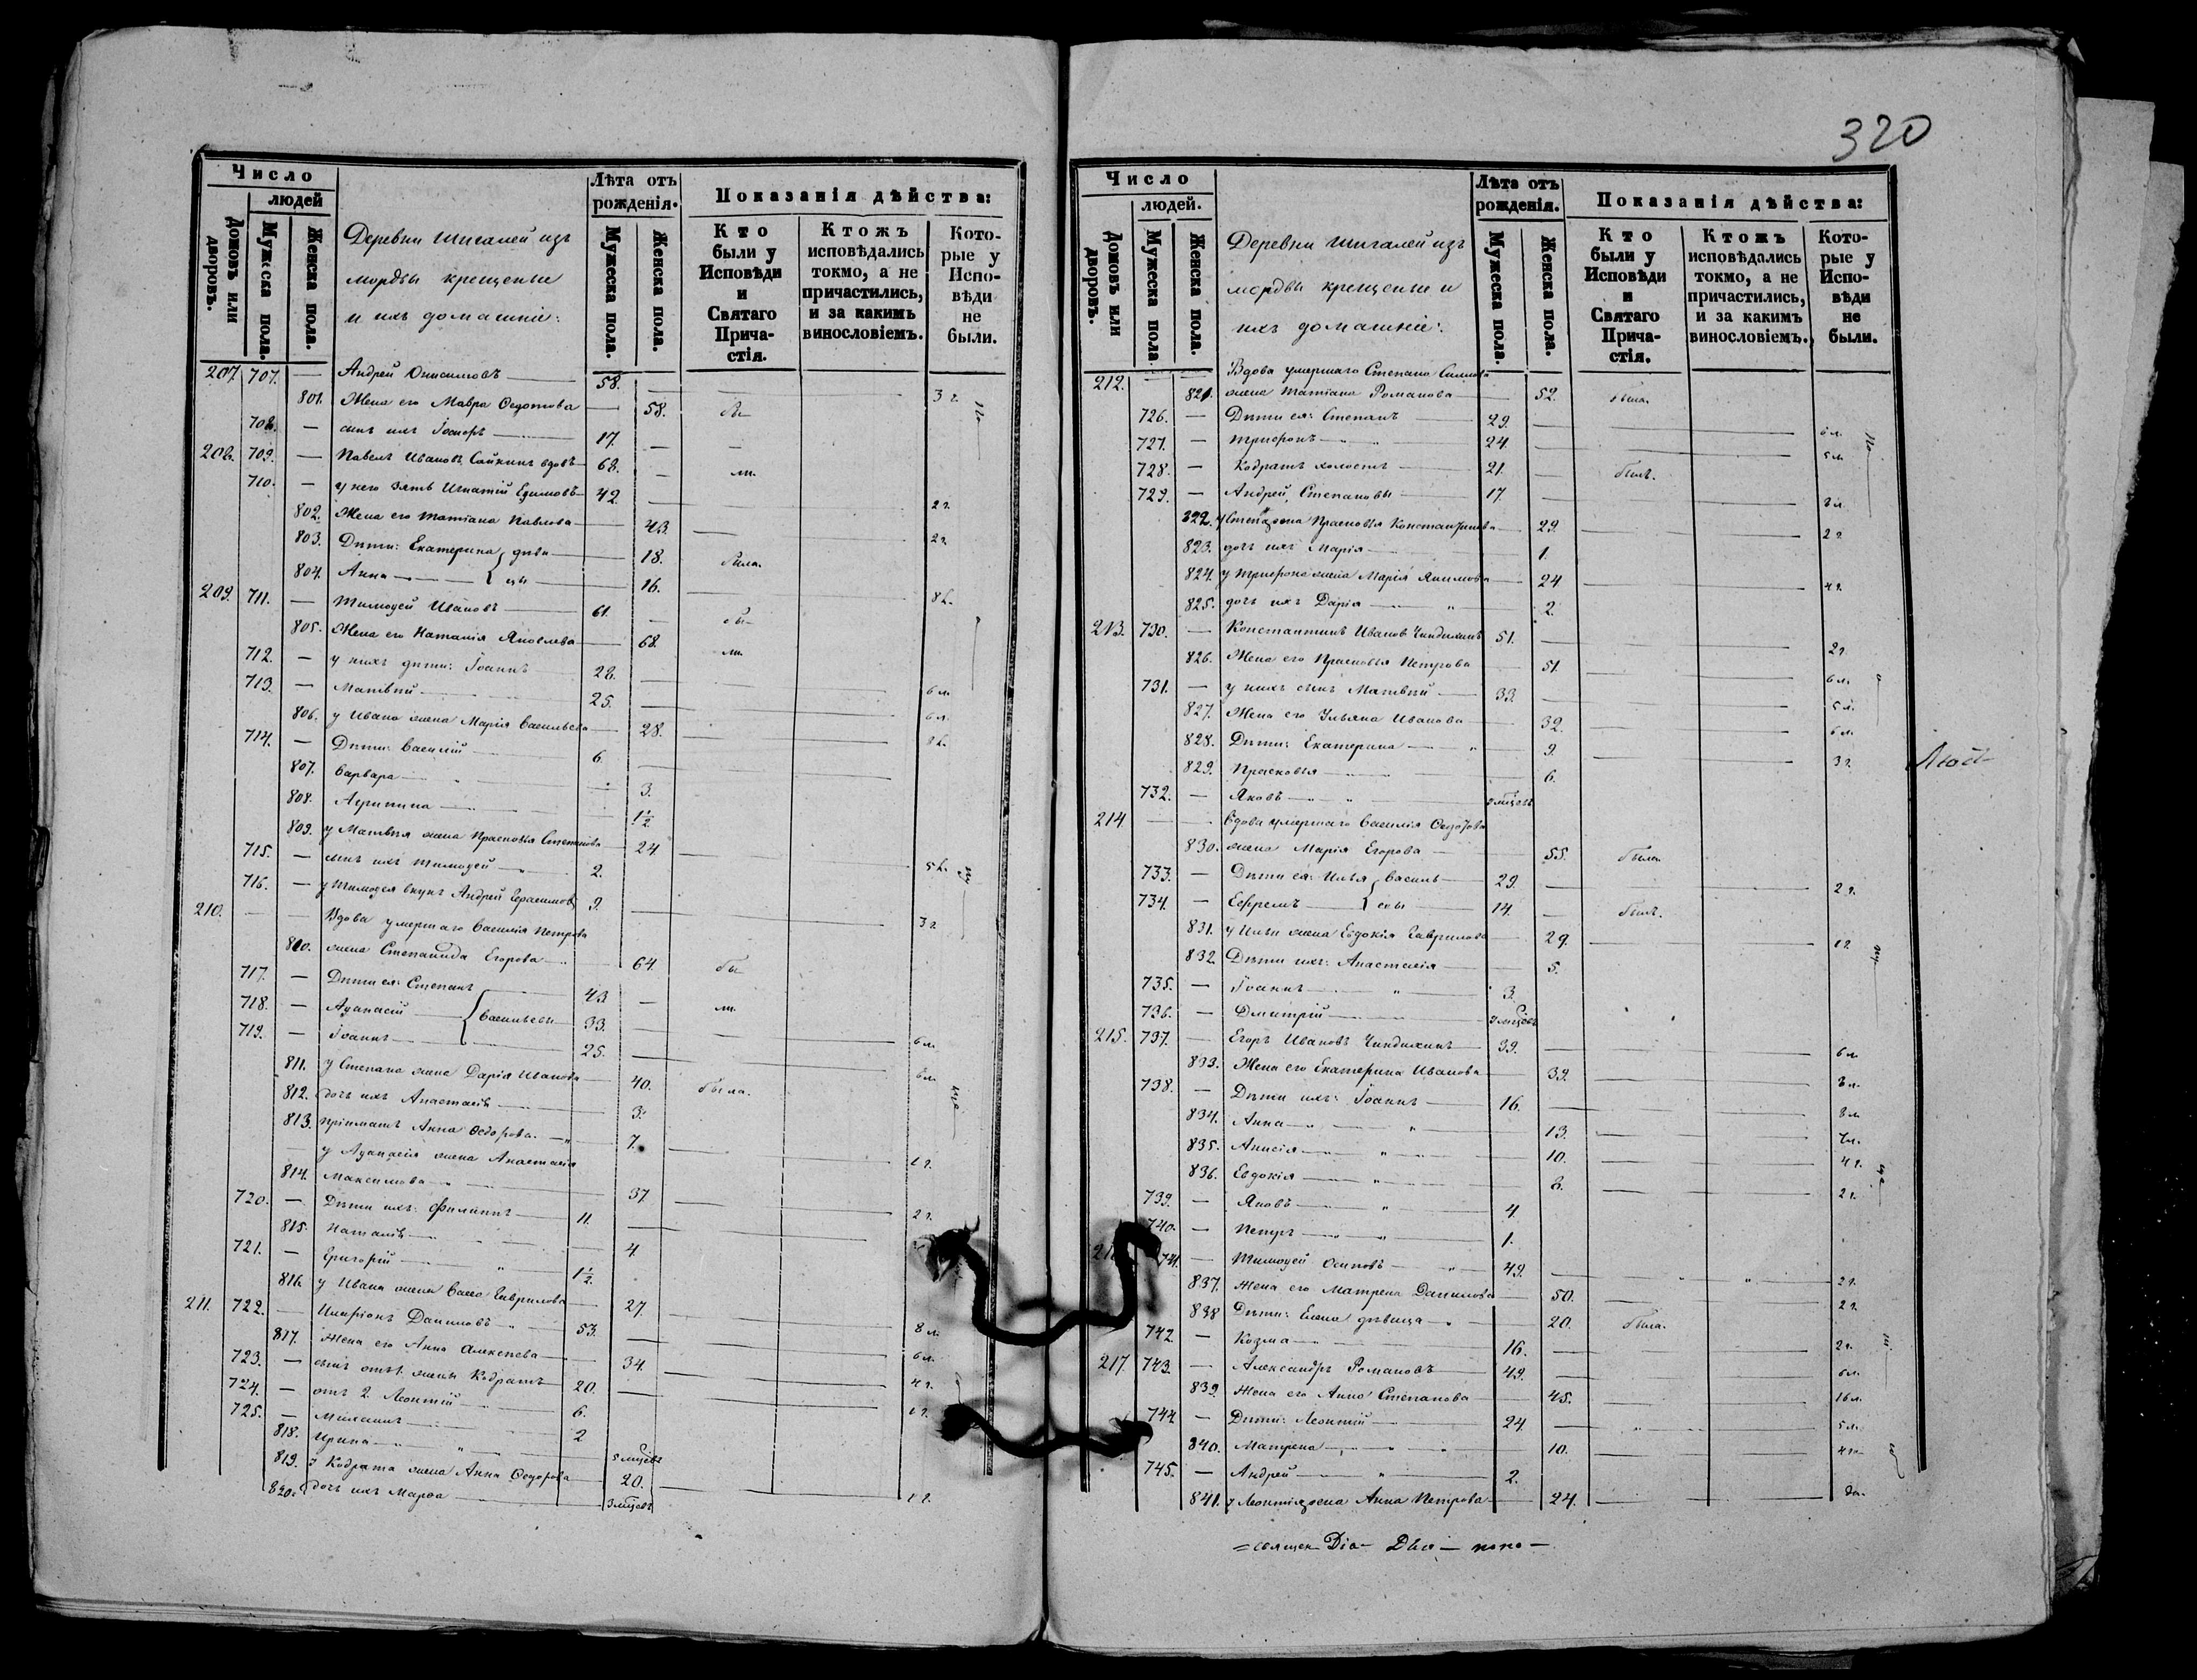 320
Число
людей
Домовъ или дворовъ.
Мужеска пола.
Женска пола.
Деревни Шигалей изъ
мордвы крещеные
и ихъ домашніе:
Лѣта отъ рожденія.
Мужеска пола.
Женска пола.
Показанія дѣйства:
Кто были у Исповѣди и Святаго Причастія.
Ктожъ исповѣдались токмо, а не причастились, и за какимъ винословіемъ.
Которые у Исповѣди не были.
207. 707. — Андрей Онисимовъ — 58. — 3 г.
801. Жена его Мавра Ѳедотова — 58.
708. — сынъ ихъ — 17. —
208. 709. — Павелъ Ивановъ вдовъ — 68. —
710. — у него зять Игнатій Ефимовъ — 42. — 2 г.
802. Жена его Татіана Павлова — 43. — 2 г.
803. Дѣти: Екатерина дѣви — 18. была.
804. Анна — цы — 16. —
209. 711. — Тимоѳей Ивановъ — 61. —
805. Жена его Наталія Яковлева — 68.
712. — у нихъ дѣти: Іоаннъ — 28. — 6 л.
713. — Матвѣй — 25. — 6 л.
806. у Ивана жена Марія Васильева — 28.
714. — Дѣти: Василій — 6.
807. Варвара — 3.
808. Агрипина — 1½
809. у Матвѣя жена Прасковія Степанова — 24.
715. — сынъ ихъ Тимоѳей — 2.
716. — у Тимоѳея внукъ Андрей Герасимовъ 9. — 3 г.
210. — — Вдова умершаго Василія Петрова
810. жена Степанида Егорова — 64.
717. — Дѣти ея: Степанъ — 43 —
718. — Аѳанасій — Васильевы — 33. — 6 л.
719. — Іоаннъ — 25. — 6 л.
811. у Степана жена Дарія Иванова — 40. была.
812. дочь ихъ Анастасія — 3.
813. пріимышъ Анна Ѳедорова — 7. — 1 г.
у Аѳанасія жена Анастасія
814. Максимова — 37 — 2 г.
720. — Дѣти ихъ: Филиппъ — 11. —
815. Наталія — 4.
721. — Григорій — 1½.
816. у Ивана жена Гаврилова — 27. — 8 л.
211. 722. — Иларіонъ Даниловъ — 53. — 6 л.
817. Жена его Анна Алексѣева — 34. — 4 г.
723. — сынъ отъ 1. жены Кодратъ — 20. — 1 г.
724. — отъ 2. Леонтій — 6.
725. — — 2
818. Ирина — 5 мѣсяцъ
819. у Кодрата жена Анна Ѳедорова — 20. — 1 г.
820. дочь ихъ Марѳа — 3 мѣсяцъ
Число
людей.
Домовъ или дворовъ.
Мужеска пола
Женска пола.
Деревни Шигалей изъ
мордвы крещеные и
ихъ домашніе:
Лѣта отъ рожденія.
Мужеска пола.
Женска пола.
Показанія дѣйства:
Кто были у Исповѣди и Святаго Причастія.
Ктожъ исповѣдались токмо, а не причастились, и за какимъ винословіемъ.
Которые у Исповѣди не были.
212. — — Вдова умершаго Степана
821. жена Татіана Романова — 52. была.
726. — Дѣти ея: Степанъ — 29. — 6 л.
727. — Трифонъ — 24. — 5 л.
728. — Кодратъ холостъ — 21. — былъ.
729. — Андрей, Степановы — 17. — 3 л.
822. у Степана жена Прасковія Константинова — 29. — 2 г.
823. дочь ихъ Марія — 1.
824. у Трифона жена Марія Якимова — 24 — 4 г.
825. дочь ихъ Дарія — 2.
213. 730. — Константинъ Иванов Чиндикинъ 51. — 2 г.
826. Жена его Прасковія Петрова 51. — 6 л.
731. — у нихъ сынъ Матвѣй — 33. — 5 л.
827. Жена его Ульяна Иванова — 32. — 6 л.
828. Дѣти: Екатерина — 9. — 3 г.
829. Прасковія — 6.
732. — Яковъ —
214. — — Вдова умершаго Василія
830. жена Марія Егорова — 55. была
733. — Дѣти ея: Илья Василь — 29. — 2 г.
734. — Ефремъ — евы — 14. — былъ.
831. у Ильи жена Евдокія Гаврилова — 29. — 1 г.
832. Дѣти ихъ: Анастасія — 5.
735. — Іоаннъ — 3.
736. — Дмитрій —
215. 737. — Егоръ Ивановъ Чиндикинъ — 39. — 6 л.
833. Жена его Екатерина Иванова — 39. — 3 л.
738. — Дѣти ихъ: Іоаннъ — 16. — 8 л.
834. Анна — 13. —
835. Анисія — 10. — 4 г.
836. Евдокія — 8. — 2 г.
739. — Яковъ — 4.
740. — Петръ — 1.
741. — Тимоѳей Осиповъ — 49. — 2 г.
837. Жена его Матрена Данилова — 50. — 2 г.
838 Дѣти: Елена дѣвица — 20. была.
742. — Козма — 16. — 2 г.
217. 743. — Александръ Романовъ — 49. — 6 л.
839. Жена его Анна Степанова — 45. — 16 л.
744 — Дѣти: Леонтій — 24. — 5 л.
840. Матрена — 10. —
745. — Андрей — 2.
841. у Леонтія жена Анна Петрова — 24. —